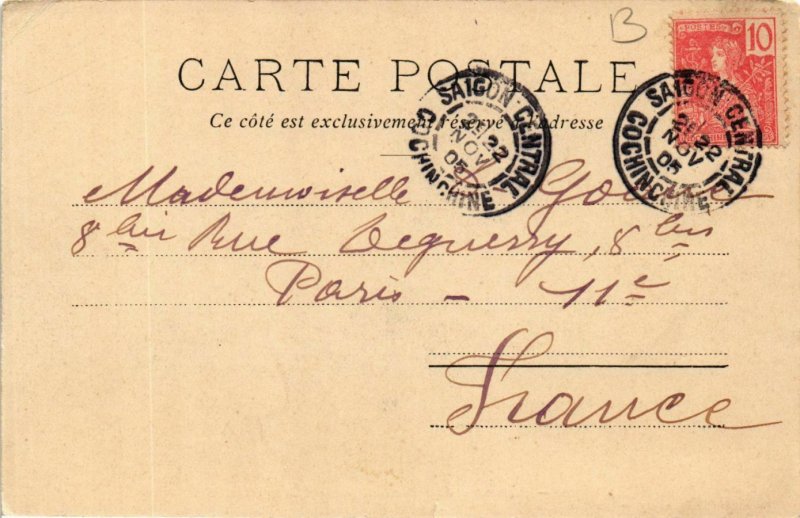 B
10
CARTE POSTALE
Ce côté est exclusivement réservé à l'adresse
SAIGON-CENTRAL
22
NOV
05
COCHINCHINE
SAIGON-CENTRAL
22
NOV
05
COCHINCHINE
Mademoiselle
8 bis Rue Leguerry, 8 bis
Paris - 11e
France